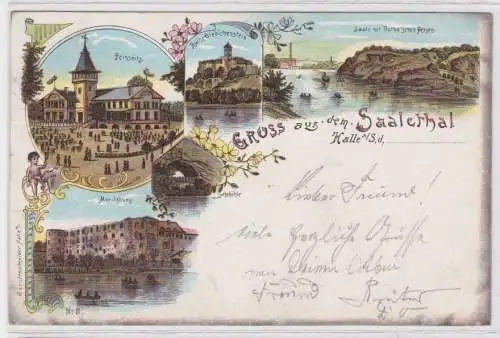 Burg Giebichenstein
Saale mit Trotha'schen Felsen
GRUSS aus dem Saalethal
Halle a/S. d.
Moritzburg
No 8.
Lieber Freund!
viele herzliche Grüsse
von Deinem lieben
Freund